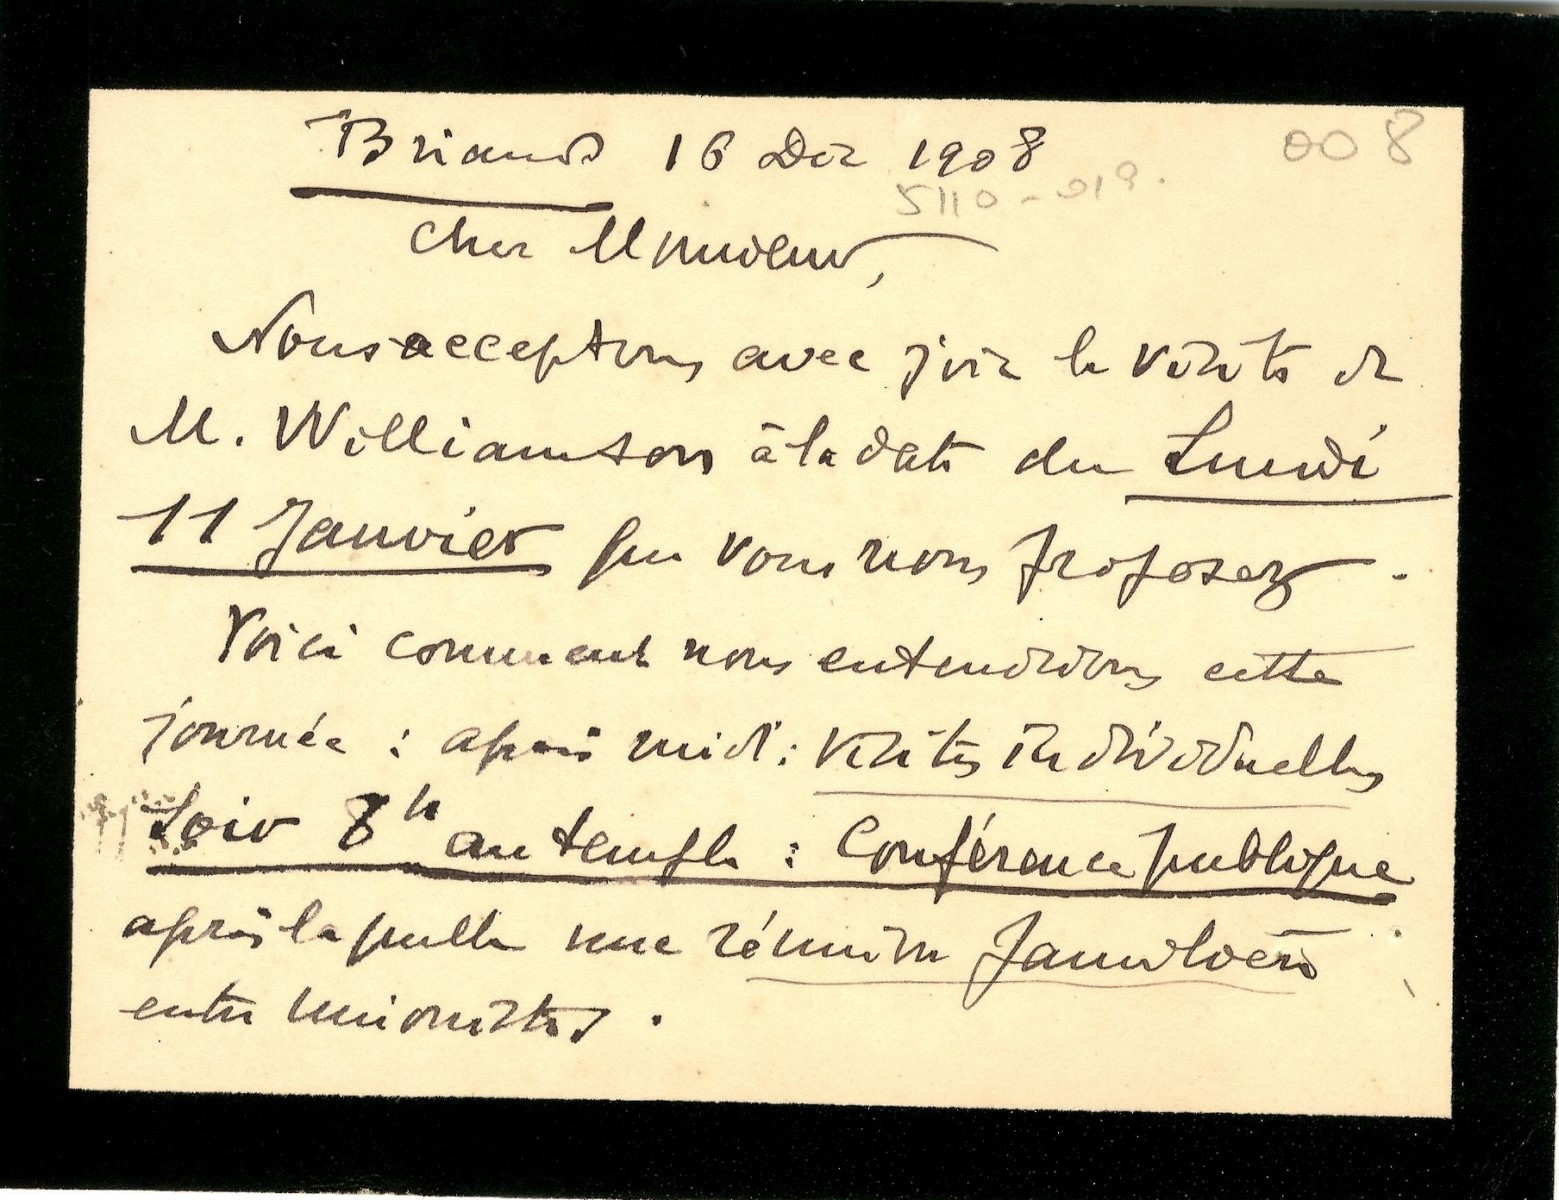 Briand 16 Déc 1908
008
5110-019.
Cher Monsieur,
Nous acceptons avec joie la visite de
M. Williamson à la date du Lundi
11 Janvier que vous nous proposez.
Voici comment nous entendrions cette
journée : après midi : visites individuelles
Soir 8h au temple : Conférence publique
après laquelle une réunion familière
entre unionistes.